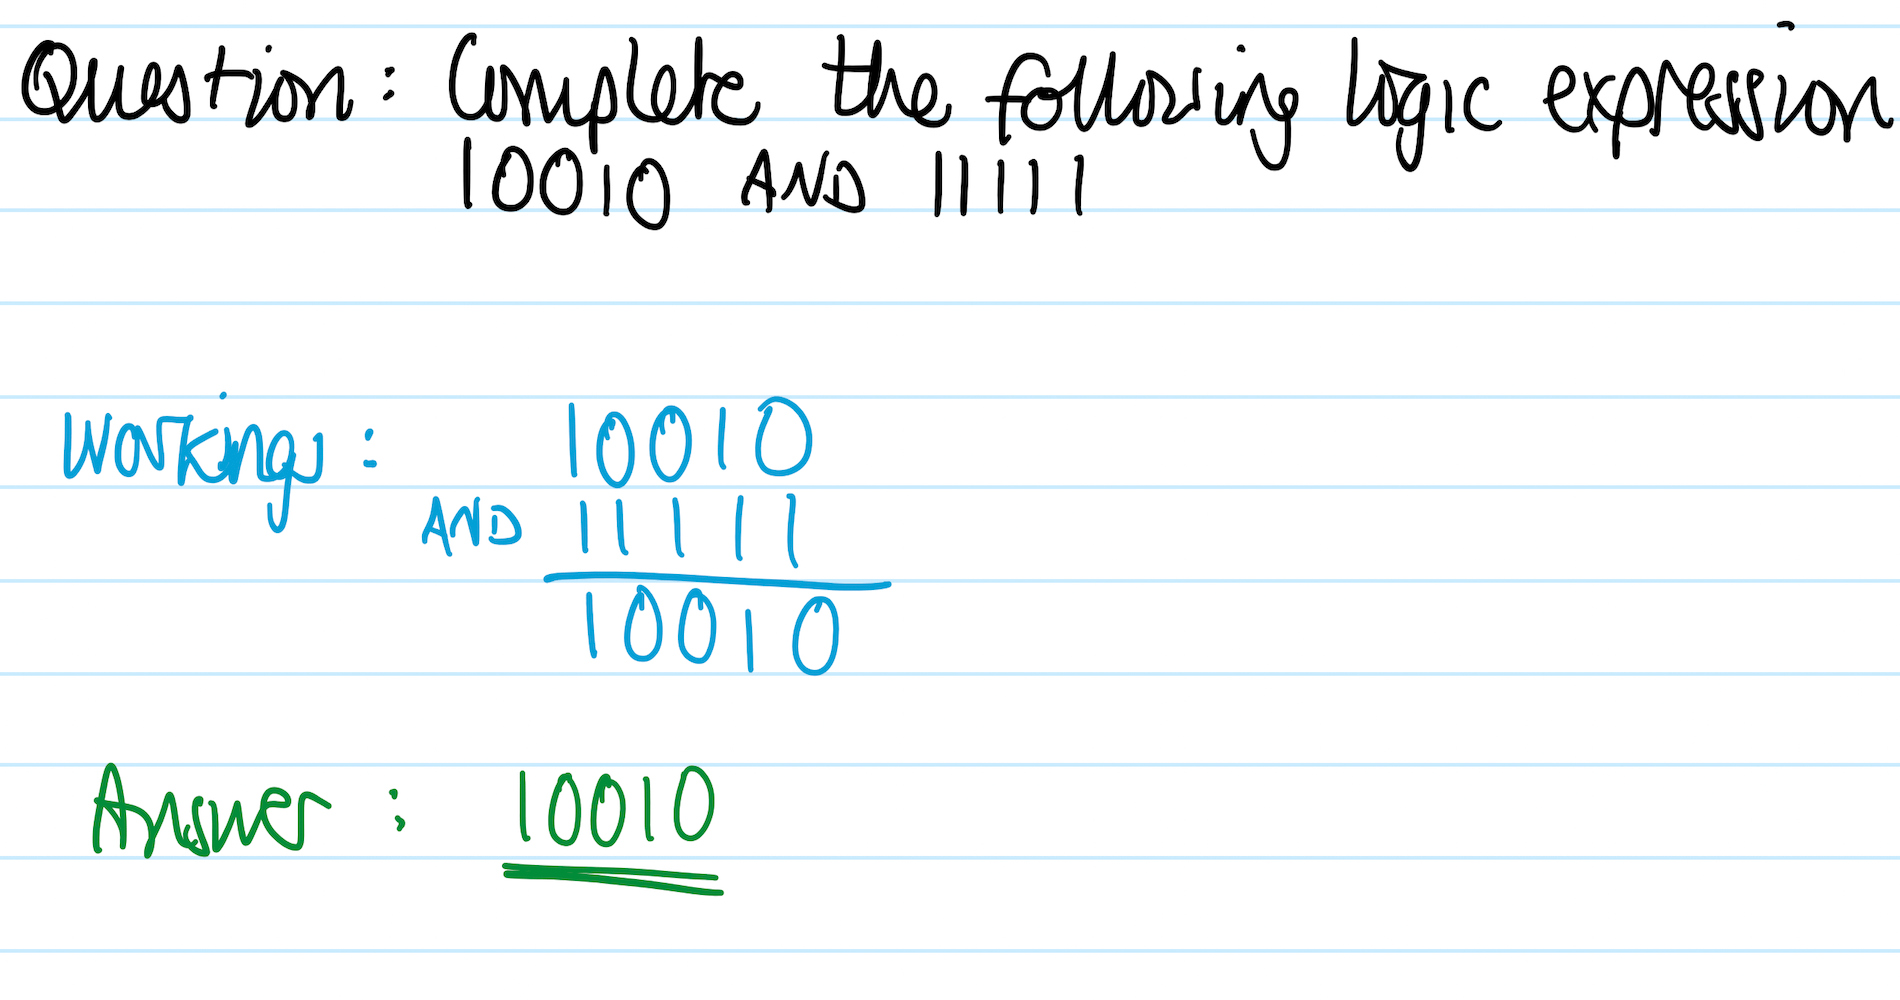 Question: Complete the following logic expression
10010 AND 11111
Workings: 10010
AND 11111
10010
Answer: 10010